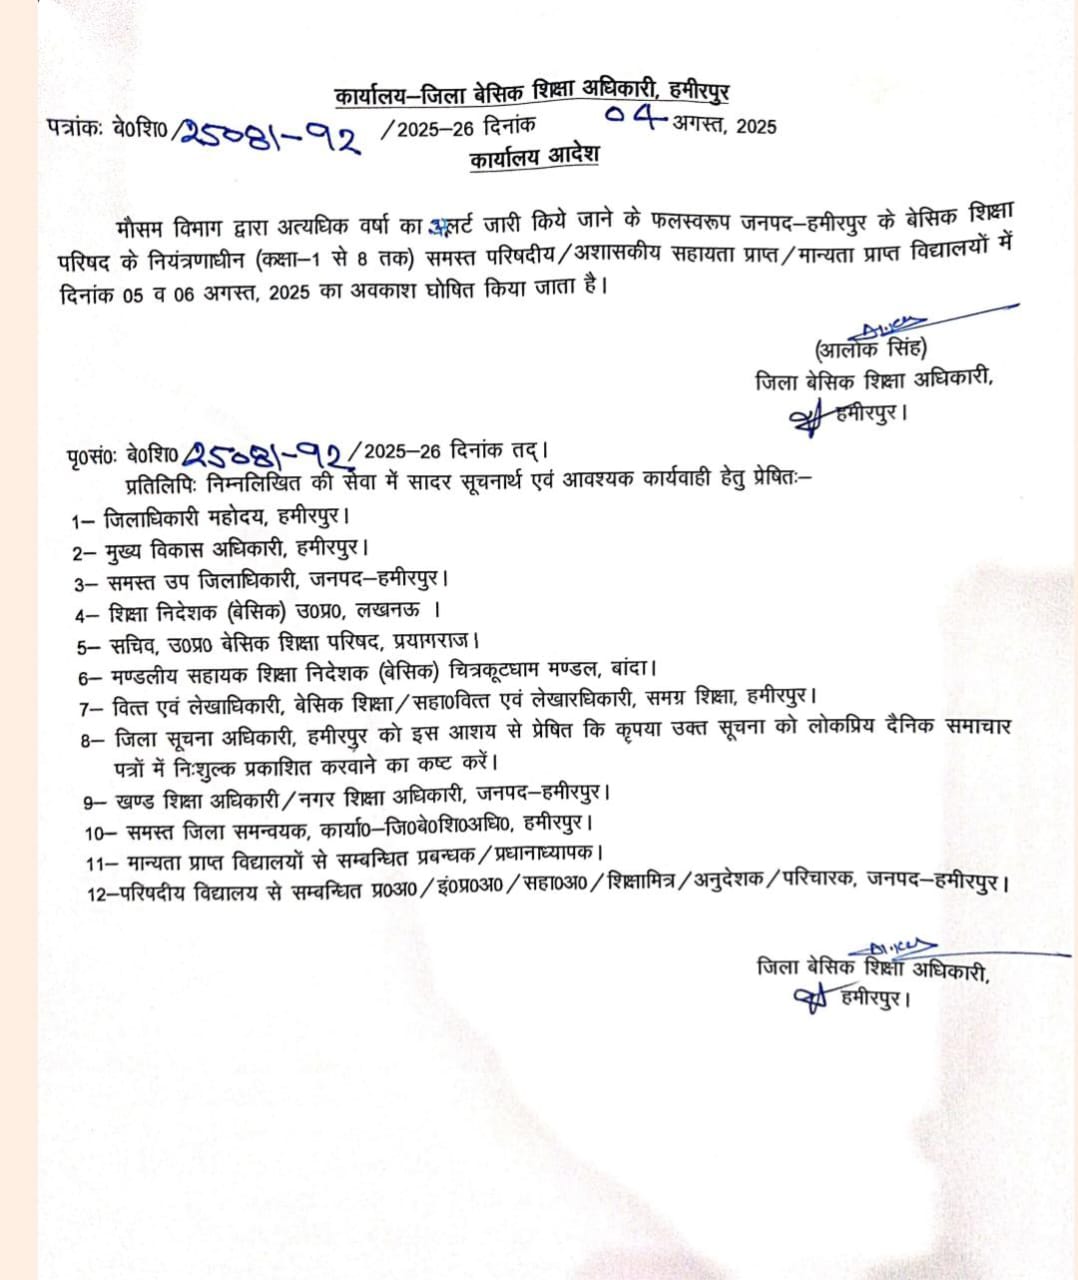 कार्यालय–जिला बेसिक शिक्षा अधिकारी, हमीरपुर
पत्रांकः बे०शि०/25081-92 /2025–26 दिनांक 04 अगस्त, 2025
कार्यालय आदेश
मौसम विभाग द्वारा अत्यधिक वर्षा का अलर्ट जारी किये जाने के फलस्वरूप जनपद–हमीरपुर के बेसिक शिक्षा
परिषद के नियंत्रणाधीन (कक्षा–1 से 8 तक) समस्त परिषदीय/अशासकीय सहायता प्राप्त/मान्यता प्राप्त विद्यालयों में
दिनांक 05 व 06 अगस्त, 2025 का अवकाश घोषित किया जाता है।
(आलोक सिंह)
जिला बेसिक शिक्षा अधिकारी,
हमीरपुर।
पृ०सं०: बे०शि० 25081-92/2025–26 दिनांक तद्।
प्रतिलिपिः निम्नलिखित की सेवा में सादर सूचनार्थ एवं आवश्यक कार्यवाही हेतु प्रेषितः–
1– जिलाधिकारी महोदय, हमीरपुर।
2– मुख्य विकास अधिकारी, हमीरपुर।
3– समस्त उप जिलाधिकारी, जनपद–हमीरपुर।
4– शिक्षा निदेशक (बेसिक) उ०प्र०, लखनऊ ।
5– सचिव, उ०प्र० बेसिक शिक्षा परिषद, प्रयागराज।
6– मण्डलीय सहायक शिक्षा निदेशक (बेसिक) चित्रकूटधाम मण्डल, बांदा।
7– वित्त एवं लेखाधिकारी, बेसिक शिक्षा/सहा०वित्त एवं लेखारधिकारी, समग्र शिक्षा, हमीरपुर।
8– जिला सूचना अधिकारी, हमीरपुर को इस आशय से प्रेषित कि कृपया उक्त सूचना को लोकप्रिय दैनिक समाचार
पत्रों में निःशुल्क प्रकाशित करवाने का कष्ट करें।
9– खण्ड शिक्षा अधिकारी/नगर शिक्षा अधिकारी, जनपद–हमीरपुर।
10– समस्त जिला समन्वयक, कार्या०–जि०बे०शि०अधि०, हमीरपुर।
11– मान्यता प्राप्त विद्यालयों से सम्बन्धित प्रबन्धक/प्रधानाध्यापक।
12–परिषदीय विद्यालय से सम्बन्धित प्र०अ०/इं०प्र०अ०/सहा०अ०/शिक्षामित्र/अनुदेशक/परिचारक, जनपद–हमीरपुर।
जिला बेसिक शिक्षा अधिकारी,
हमीरपुर।